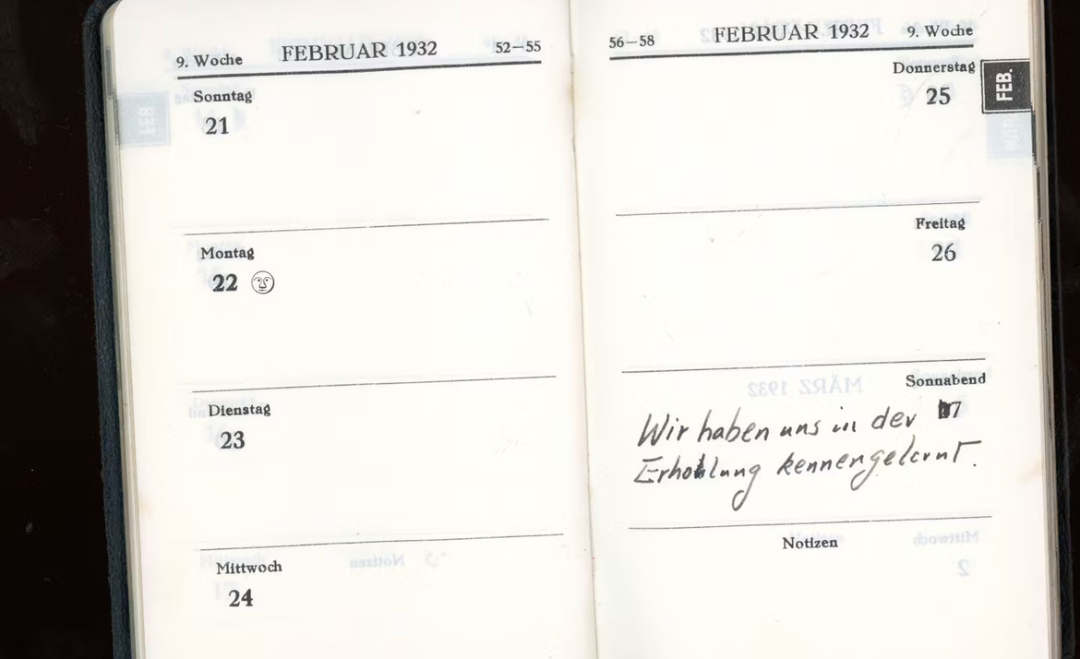 9. Woche FEBRUAR 1932 52—55
Sonntag
21
Montag
22
Dienstag
23
Mittwoch
24
56—58 FEBRUAR 1932 9. Woche
FEB.
Donnerstag
25
Freitag
26
Sonnabend
Wir haben uns in der
Erhohlung kennengelernt.
Notizen